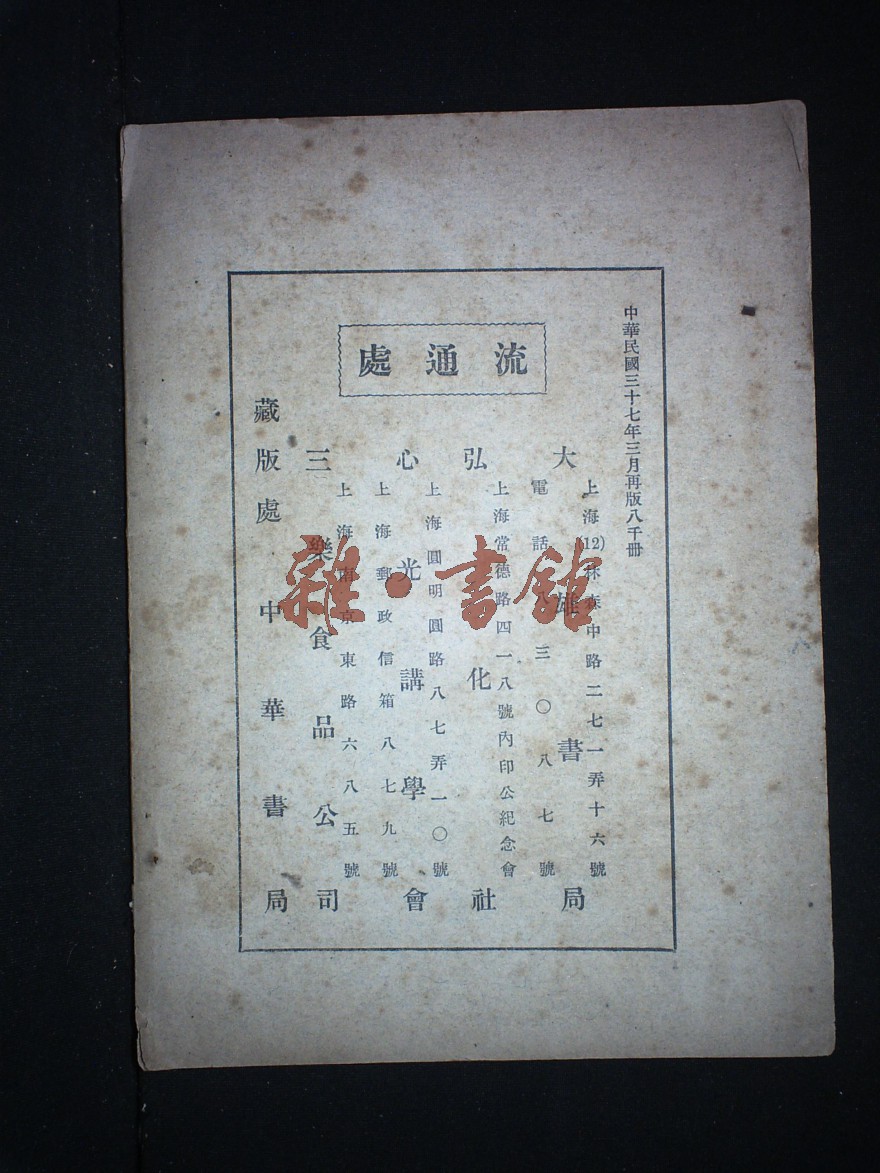 中華民國三十七年三月再版八千冊
流通處
上海(12)林森中路二七一弄十六號
大雄書局
電話八三〇八七號
上海常德路四一八號內印公紀念會
弘化社
上海圓明圓路八七弄一〇號
心光講學會
上海郵政信箱八七九號
上海南京東路六八五號
三樂食品公司
藏版處 中華書局
雜·書館